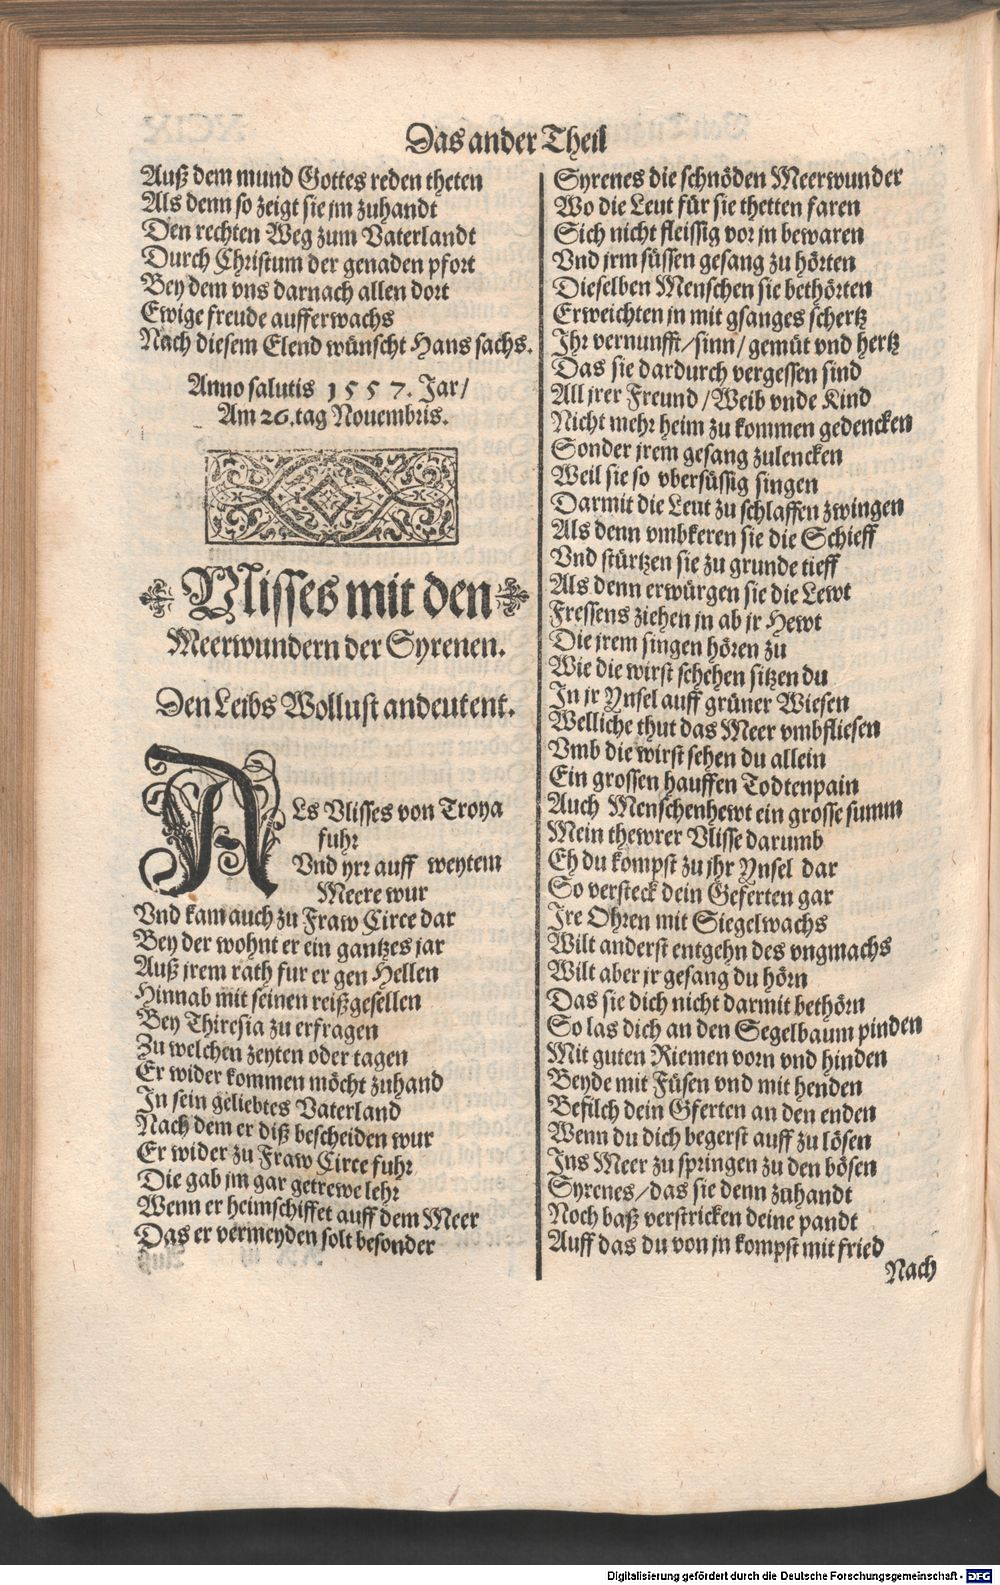 Das ander Theil
Auß dem mund Gottes reden theten
Als denn so zeigt sie jm zuhandt
Den rechten Weg zum Vaterlandt
Durch Christum der genaden pfort
Bey dem vns darnach allen dort
Ewige freude aufferwachs
Nach diesem Elend wünscht Hans sachs.
Anno salutis 1557. Jar/
Am 26. tag Nouembris.
Vlisses mit den
Meerwundern der Syrenen.
Den Leibs Wollust andeutent.
ALs Vlisses von Troya
fuhr
Vnd yrr auff weytem
Meere wur
Vnd kam auch zu Fraw Circe dar
Bey der wohnt er ein gantzes jar
Auß jrem rath fur er gen Hellen
Hinnab mit seinen reißgesellen
Bey Thiresia zu erfragen
Zu welchen zeyten oder tagen
Er wider kommen möcht zuhand
In sein geliebtes Vaterland
Nach dem er diß bescheiden wur
Er wider zu Fraw Circe fuhr
Die gab jm gar getrewe lehr
Wenn er heimschiffet auff dem Meer
Das er vermeyden solt besonder
Syrenes die schnöden Meerwunder
Wo die Leut für sie thetten faren
Sich nicht fleissig vor jn bewaren
Vnd jrm süssen gesang zu hörten
Dieselben Menschen sie bethörten
Erweichten jn mit gsanges schertz
Ihr vernunfft/sinn/gemüt vnd hertz
Das sie dardurch vergessen sind
All jrer Freund/Weib vnde Kind
Nicht mehr heim zu kommen gedencken
Sonder jrem gesang zulencken
Weil sie so vbersüssig singen
Darmit die Leut zu schlaffen zwingen
Als denn vmbkeren sie die Schieff
Vnd stürtzen sie zu grunde tieff
Als denn erwürgen sie die Lewt
Fressens ziehen jn ab jr Hewt
Die jrem singen hören zu
Wie die wirst schehen sitzen du
In jr Ynsel auff grüner Wiesen
Welliche thut das Meer vmbfliesen
Vmb die wirst sehen du allein
Ein grossen hauffen Todtenpain
Auch Menschenhewt ein grosse summ
Mein thewrer Vlisse darumb
Eh du kompst zu jhr Ynsel dar
So versteck dein Geferten gar
Ire Ohren mit Siegelwachs
Wilt anderst entgehn des vngmachs
Wilt aber jr gesang du hörn
Das sie dich nicht darmit bethörn
So las dich an den Segelbaum pinden
Mit guten Riemen vorn vnd hinden
Beyde mit Füsen vnd mit henden
Befilch dein Gferten an den enden
Wenn du dich begerst auff zu lösen
Ins Meer zu springen zu den bösen
Syrenes/das sie denn zuhandt
Noch baß verstricken deine pandt
Auff das du von jn kompst mit fried
Nach
Digitalisierung gefördert durch die Deutsche Forschungsgemeinschaft - DFG